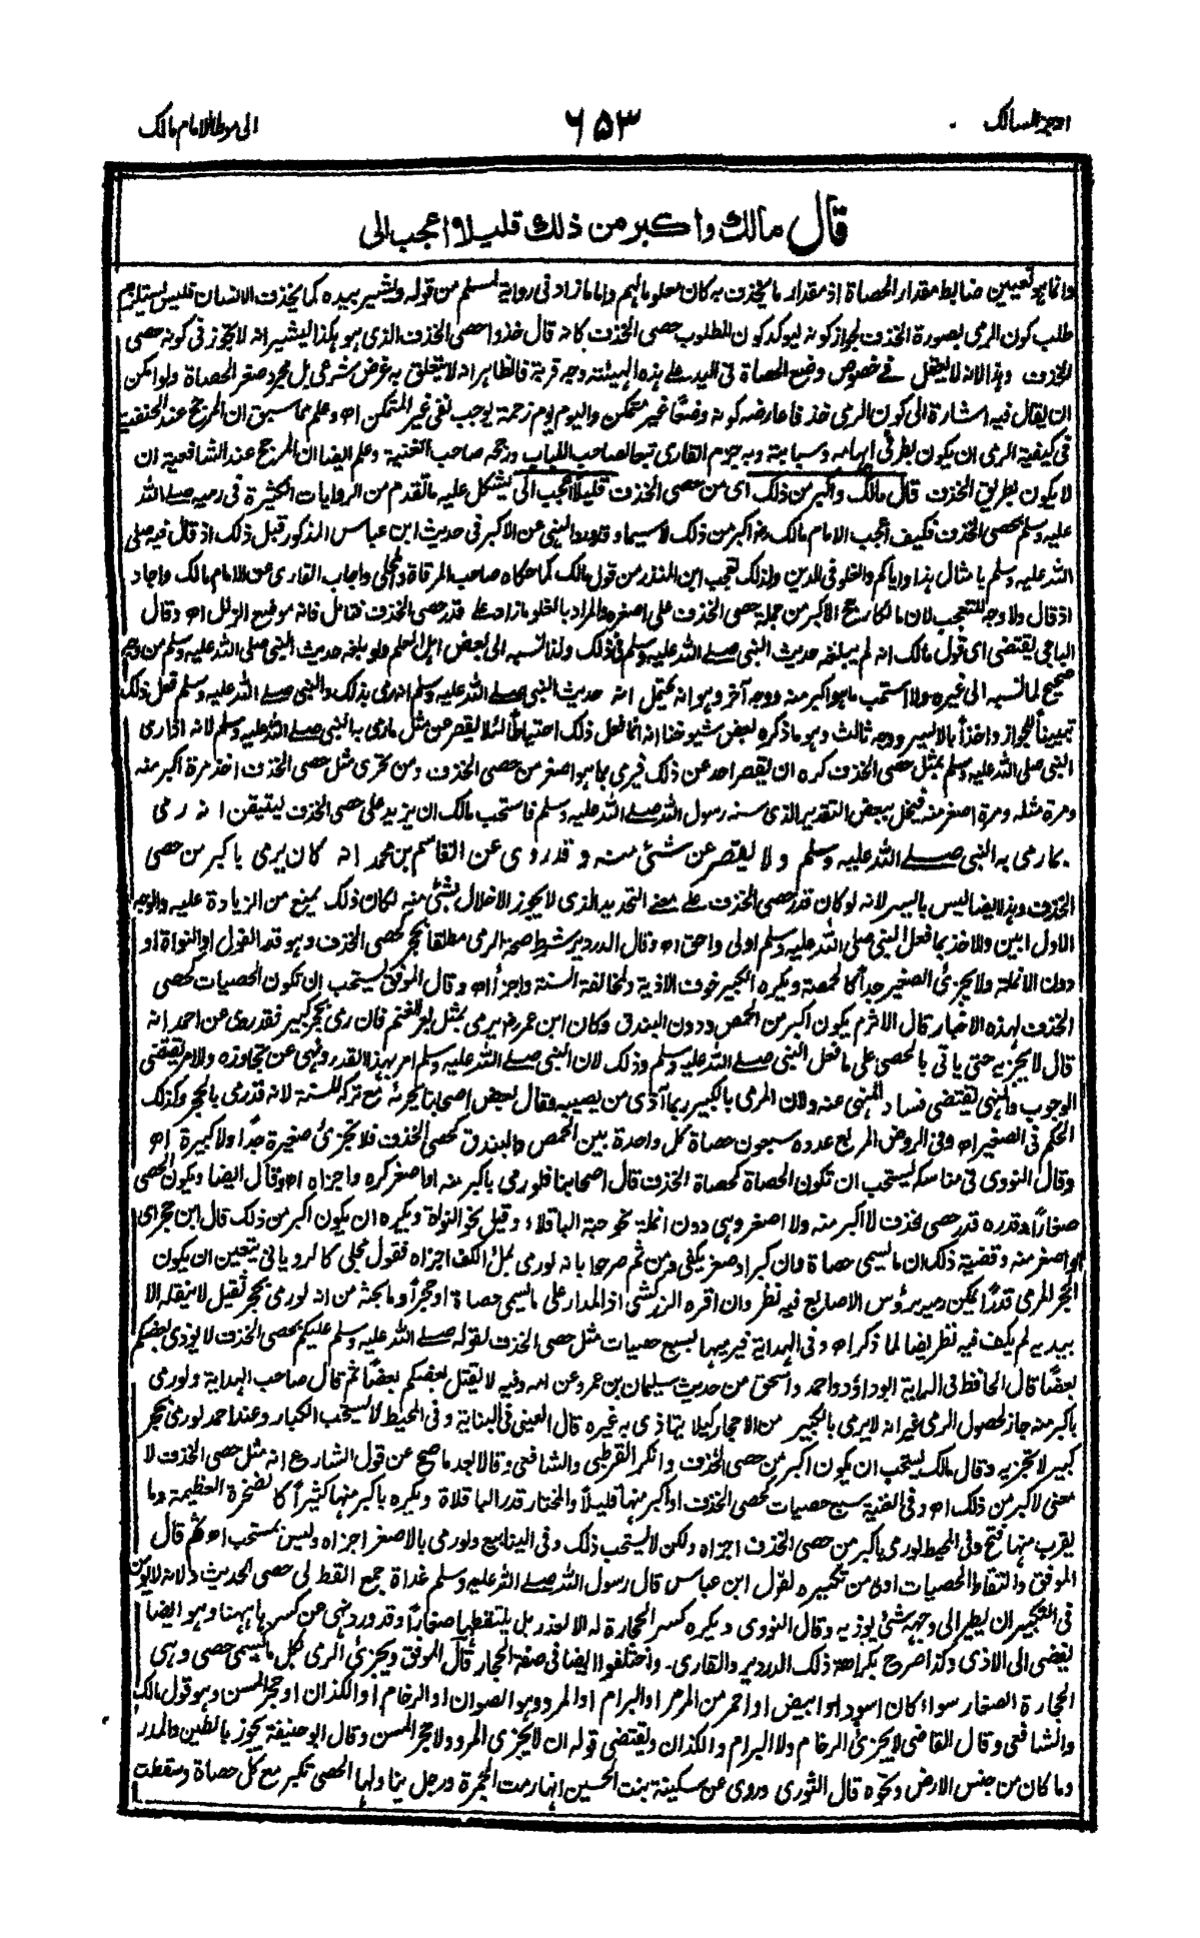 اوجز المسالك
٦٥٣
الى موطا الامام مالك
قال مالك واكبر من ذلك قليلا اعجب الى
وانما هو تعيين ضابط مقدار الحصاة اذ مقدار ما يخذف به كان معلوما لهم واما ما زاد فى رواية لمسلم من قوله ويشير بيده كما يخذف الانسان فليس يستلزم
طلب كون الرمى بصورة الخذف لجواز كونه ليوكد كون المطلوب حصى الخذف كانه قال خذوا حصى الخذف الذى هو هكذا ليشير انه لا يجوز فى كونه حصى
الخذف وهذا لانه لا يعقل فى خصوص وضع الحصاة فى اليد على هذه الهيئة وجه قربة فالظاهر انه لا يتعلق به غرض شرعى بل مجرد صغر الحصاة ولو امكن
ان يقال فيه اشارة الى كون الرمى خذفا عارضه كونه وضعا غير متمكن واليوم يوم زحمة يوجب نفى غير المتمكن اھ وعلم مما سبق ان المرجح عند الحنفية
فى كيفية الرمى ان يكون بطرفى ابهامه وسبابته وبه جزم القارى تبعا لصاحب اللباب ورجحه صاحب الغنية وعلم ايضا ان المرجح عند الشافعية ان
لا يكون بطريق الخذف قال مالك واكبر من ذلك اى من حصى الخذف قليلا اعجب الى يشكل عليه ما تقدم من الروايات الكثيرة فى رميه صلے الله
عليه وسلم بحصى الخذف فكيف اعجب الامام مالك رضـ اكبر من ذلك لا سيما وقد ورد النهى عن الاكبر فى حديث ابن عباس المذكور قبل ذلك اذ قال فيه صلى
الله عليه وسلم بامثال هذا واياكم والغلو فى الدين ولذلك تعجب ابن المنذر من قول مالك كما حكاه صاحب المرقاة والمحلى واجاب القارى عن الامام مالك واجاد
اذ قال ولا وجه للتعجب لان مالكا رجح الاكبر من جملة حصى الخذف على اصغره والمراد بالغلو ما زاد على قدر حصى الخذف فتامل فانه موضع الزلل اھ وقال
الباجى يقتضى اى قول مالك انه لم يبلغه حديث النبى صلے الله عليه وسلم فى ذلك ولذا نسبه الى بعض اهل العلم ولو بلغه حديث النبى صلى الله عليه وسلم من وجه
صحيح لما نسبه الى غيره ولا استحب ما هو اكبر منه ووجه آخر وهو انه يحتمل انه حديث النبى صلے الله عليه وسلم انه رمى بذلك والنبى صلے الله عليه وسلم فعل ذلك
تبيينا للجواز واخذا بالايسر ووجه ثالث وهو ما ذكره بعض شيوخنا انه انما فعل ذلك احتياطا لئلا يقصر عن مثل ما رمى به النبى صلے الله عليه وسلم لانه اذا رمى
النبى صلى الله عليه وسلم بمثل حصى الخذف كره ان يقصر احد عن ذلك فيرمى بما هو اصغر من حصى الخذف ومن تحرى مثل حصى الخذف اخذ مرة اكبر منه
ومرة مثله ومرة اصغر منه فيخل ببعض التقدير الذى سنه رسول الله صلے الله عليه وسلم فاستحب مالك ان يزيد على حصى الخذف ليتيقن انه رمى
بما رمى به النبى صلے الله عليه وسلم ولا يقتصر عن شئ منه وقد روى عن القاسم بن محمد انه كان يرمى باكبر من حصى
الخذف وهذا ايضا ليس باليسر لانه لو كان قدر حصى الخذف على معنى التحديد الذى لا يجوز الاخلال بشئ منه لكان ذلك يمنع من الزيادة عليه والوجه
الاول ابين والاخذ بما فعل النبى صلى الله عليه وسلم اولى واحق اھ وقال الدردير شرط صحة الرمى مطلقا بحجر كحصى الخذف وهو قدر الفول او النواة او
دون الانملة ولا يجزئ الصغير جدا كالحمصة ويكره الكبير خوف الاذية ولمخالفة السنة واجزأ اھ وقال الموفق يستحب ان تكون الحصيات كحصى
الخذف لهذه الاخبار قال الاثرم يكون اكبر من الحمص ودون البندق وكان ابن عمر رضـ يرمى بمثل بعر الغنم فان رمى بحجر كبير فقد روى عن احمد انه
قال لا يجزيه حتى ياتى بالحصى على ما فعل النبى صلے الله عليه وسلم وذلك لان النبى صلے الله عليه وسلم امر بهذا القدر ونهى عن تجاوزه والامر يقتضى
الوجوب والنهى يقتضى فساد المنهى عنه ولان الرمى بالكبير ربما آذى من يصيبه وقال بعض اصحابنا يجزئه مع تركه للسنة لانه قد رمى بالحجر وكذلك
الحكم فى الصغير اھ وفى الروض المربع عدده سبعون حصاة كل واحدة بين الحمص والبندق كحصى الخذف فلا تجزئ صغيرة جدا ولا كبيرة اھ
وقال النووى فى مناسكه يستحب ان تكون الحصاة كحصاة الخذف قال اصحابنا فلو رمى باكبر منه او اصغر كره واجزاه اھ وقال ايضا ويكون الحصى
صغارا وقدره قدر حصى الخذف لا اكبر منه ولا اصغر وهى دون انملة نحو حبة الباقلاء وقيل نحو النواة ويكره ان يكون اكبر من ذلك قال ابن حجر اى
او اصغر منه وقضية ذلك ان ما يسمى حصاة وان كبر او صغر يكفى ومن ثم صرحوا بانه لو رمى بملء الكف اجزاه فقول مجلى كالرويانى يتعين ان يكون
الحجر المرمى قدرا يمكن رميه برؤس الاصابع فيه نظر وان اقره الزركشى اذ المدار على ما يسمى حصاة او حجرا وما بحثه من انه لو رمى بحجر ثقيل لا ينقله الا
بيديه لم يكف فيه نظر ايضا لما ذكر اھ وفى الهداية فيرميها بسبع حصيات مثل حصى الخذف لقوله صلے الله عليه وسلم عليكم بحصى الخذف لا يؤذى بعضكم
بعضا قال الحافظ فى الدراية ابو داؤد واحمد واسحق من حديث سليمان بن عمرو عن امه وفيه لا يقتل بعضكم بعضا ثم قال صاحب الهداية ولو رمى
باكبر منه جاز لحصول الرمى غير انه لا يرمى بالكبير من الاحجار كيلا يتاذى به غيره قال العينى فى البناية وفى المحيط لا يستحب الكبار وعند احمد لو رمى بحجر
كبير لا يجزيه وقال مالك يستحب ان يكون اكبر من حصى الخذف وانكر القرطبى والشافعى وقالا بعد ما صح عن قول الشارع انه مثل حصى الخذف لا
معنى لاكبر من ذلك اھ وفى الغنية سبع حصيات كحصى الخذف او اكبر منها قليلا والمختار قدر الباقلاة ويكره باكبر منها كثيرا كالصخرة العظيمة وما
يقرب منها فتح وفى المحيط لو رمى باكبر من حصى الخذف اجزاه ولكن لا يستحب ذلك وفى الينابيع ولو رمى بالاصغر اجزاه وليس بمستحب اھ ثم قال
الموفق والتقاط الحصيات اولى من تكسيره لقول ابن عباس قال رسول الله صلے الله عليه وسلم غداة جمع القط لى حصى الحديث ولانه لا يومن
فى التكسير ان يطير الى وجهه شئ يوذيه وقال النووى ويكره كسر الحجارة له الا لعذر بل يلتقطها صغارا وقد ورد نهى عن كسرها ههنا وهو ايضا
يفضى الى الاذى وكذا صرح بكراهة ذلك الدردير والقارى۔ واختلفوا ايضا فى صفة الحجار قال الموفق ويجزئ الرمى بكل ما يسمى حصى وهى
الحجارة الصغار سواء كان اسود او ابيض او احمر من المرمر او البرام او المرو وهو الصوان او الرخام او الكذان او حجر المسن وهو قول مالك
والشافعى وقال القاضى لا يجزئ الرخام ولا البرام والكذان ويقتضى قوله ان لا يجزى المرو ولا حجر المسن وقال ابو حنيفة يجوز بالطين والمدر
وما كان من جنس الارض ونحوه قال الثورى وروى عن سكينة بنت الحسين انها رمت الجمرة ورجل يناولها الحصى تكبر مع كل حصاة وسقطت